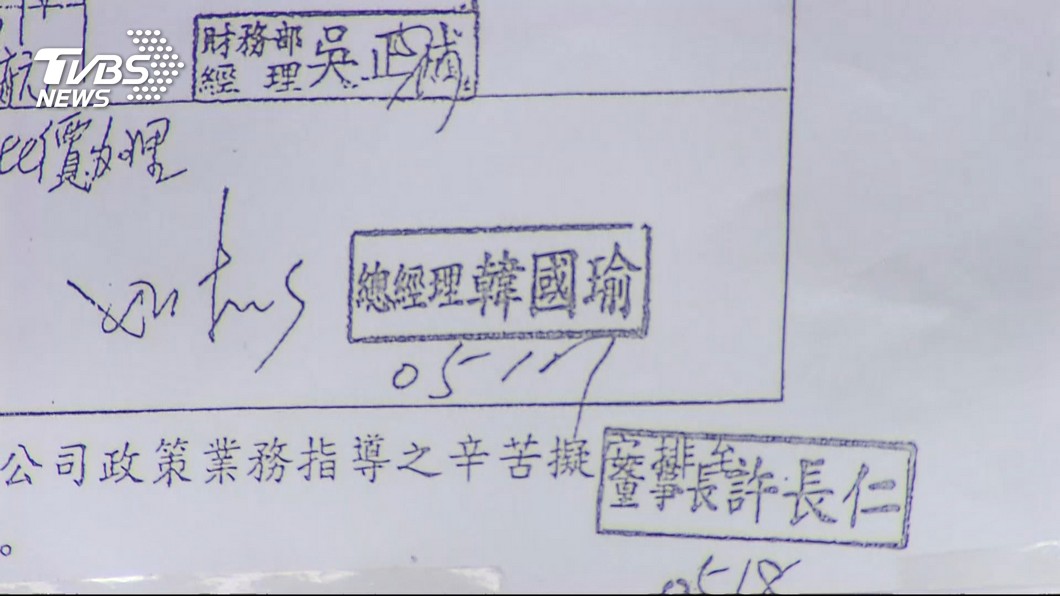 TVBS
NEWS
航
財務部
經理 吳正
價辦理
總經理韓國瑜
0517
公司政策業務指導之辛苦擬安排至
董事長許長仁
。
0518